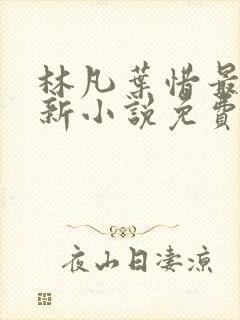 林凡葉惜最
新小說免費
夜山日淒涼